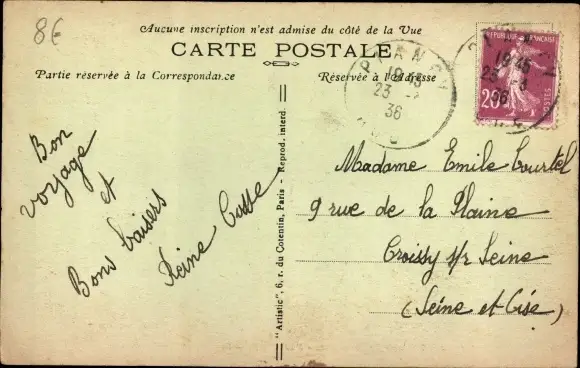 8€
Aucune inscription n'est admise du côté de la Vue
CARTE POSTALE
Partie réservée à la Correspondance
Réservée à l'Adresse
REPUBLIQUE FRANÇAISE
20
POSTES
19 45
23
36
19 45
23
36
Bon
voyage
et
Bons baisers
Reine
Madame Emile Courtel
9 rue de la Plaine
Croissy s/r Seine
(Seine et Oise)
"Artistic", 6, r. du Cotentin, Paris - Reprod. interd.